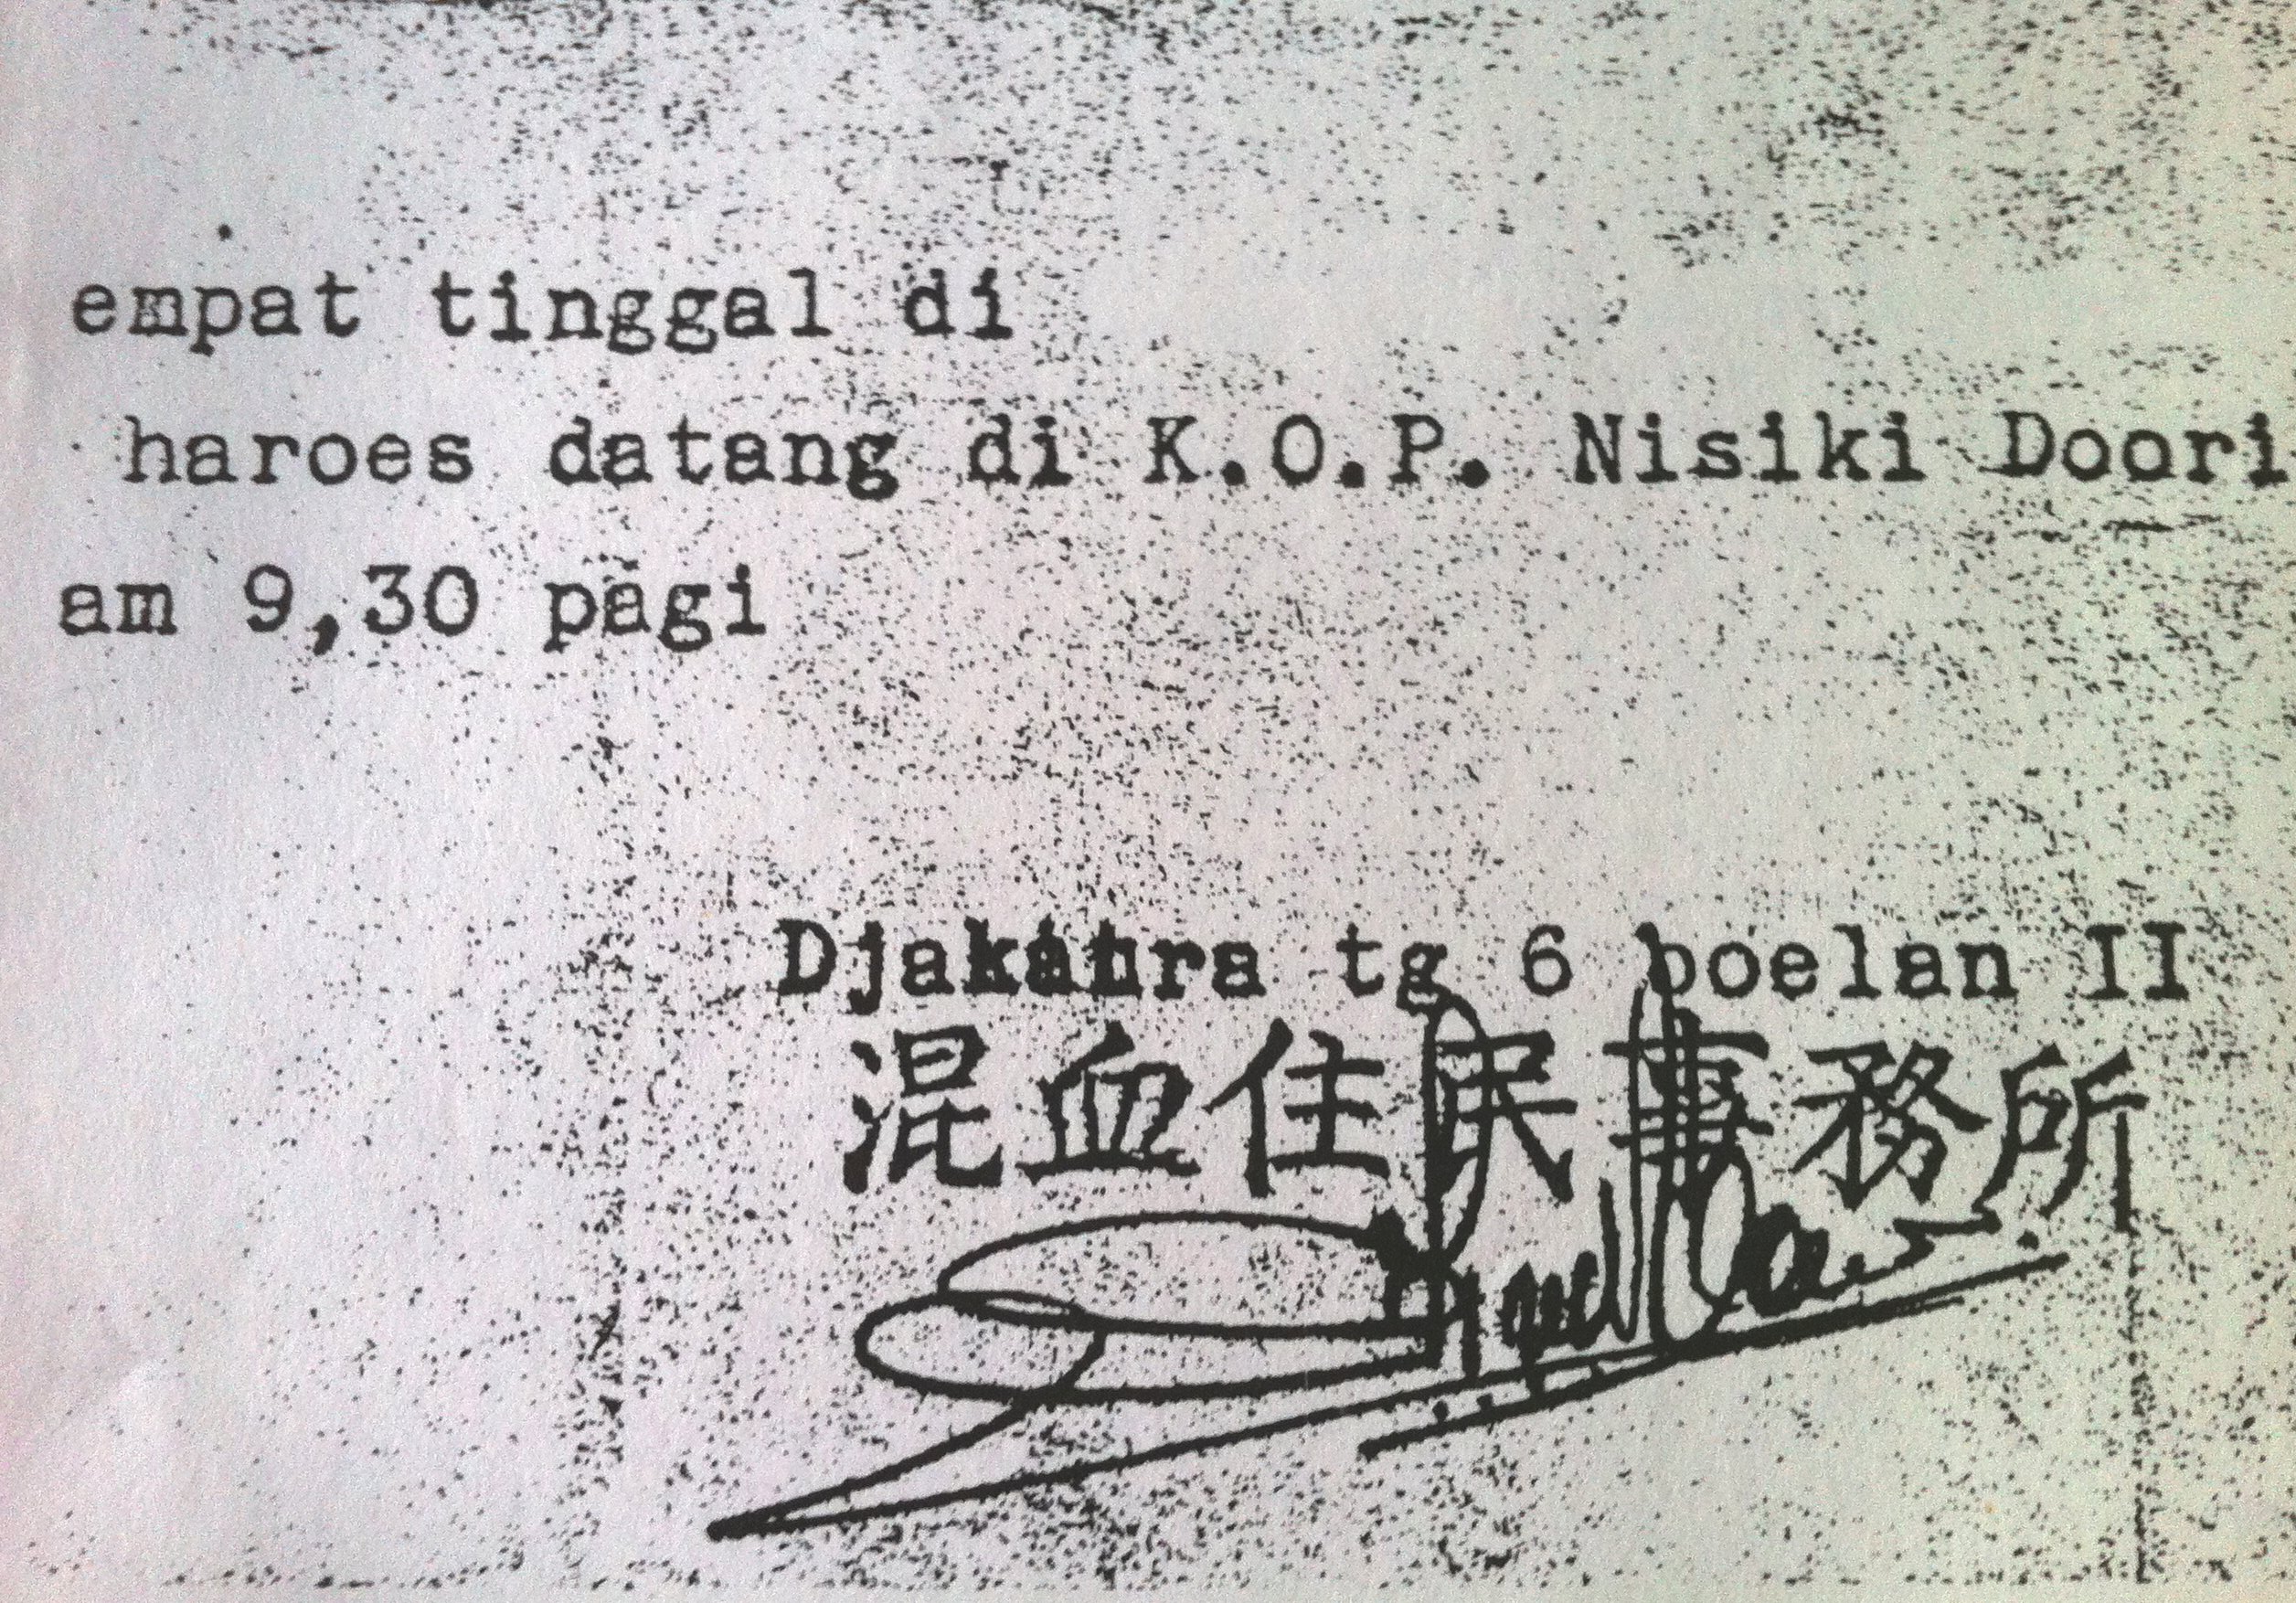 empat tinggal di
haroes datang di K.O.P. Nisiki Doori
am 9,30 pagi
tg 6 boelan II
混血住民事務所